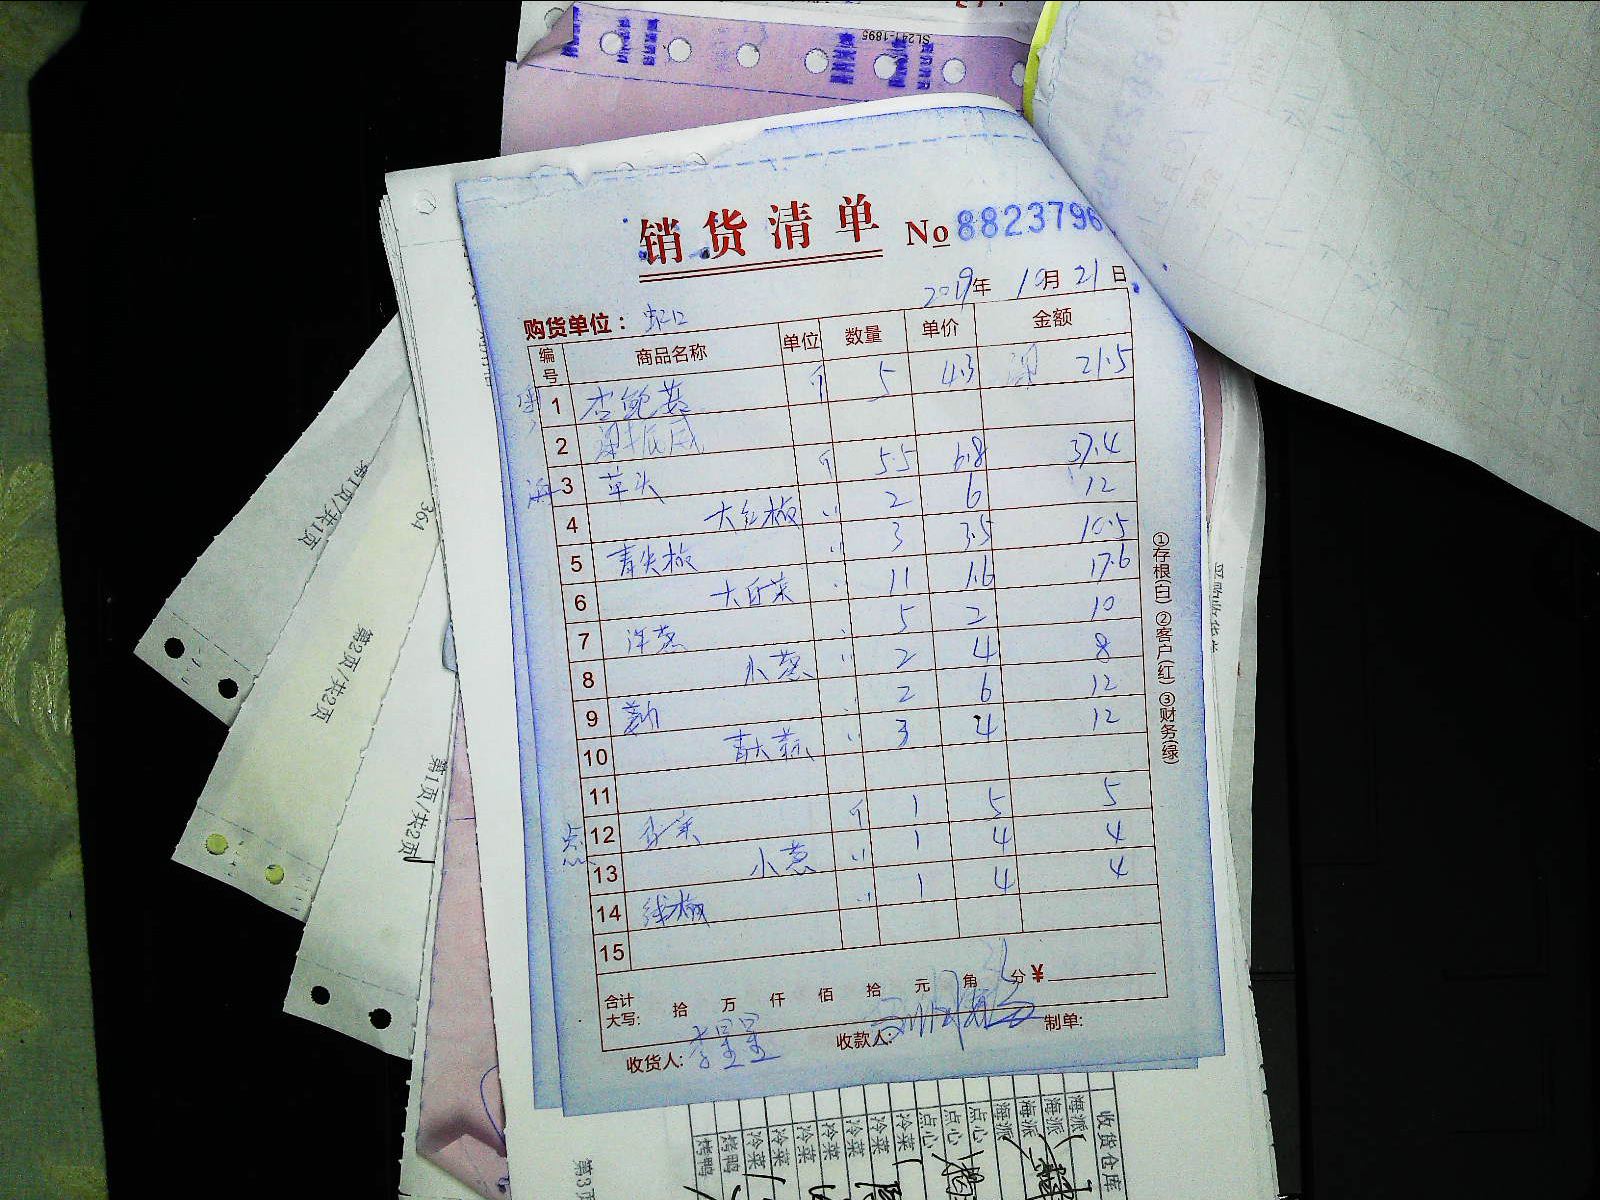 SL241-1895
销货清单 No 8823796
2019年 10月 21日
购货单位： 虹口
编号 商品名称 单位 数量 单价 金额
1 杏鲍菇 斤 5 4.3 21.5
2
海 3 草头 斤 5.5 6.8 37.4
4 大红椒 〃 2 6 12
5 青尖椒 〃 3 3.5 10.5
6 大白菜 〃 11 1.6 17.6
7 洋葱 〃 5 2 10
8 小葱 〃 2 4 8
9 〃 2 6 12
10 青大蒜 〃 3 4 12
11
点 12 香菜 斤 1 5 5
13 小葱 〃 1 4 4
14 线椒 〃 1 4 4
15
合计大写: 拾 万 仟 佰 拾 元 角 分 ¥
收货人: 李星星 收款人: 制单:
①存根(白) ②客户(红) ③财务(绿)
第1页/共1页
364
第2页/共2页
第1页/共2页
收货仓库
海派
海派
海派
海派
点心
点心
点心
冷菜
冷菜
冷菜
冷菜
冷菜
冷菜
烤鸭
烤鸭
第3页